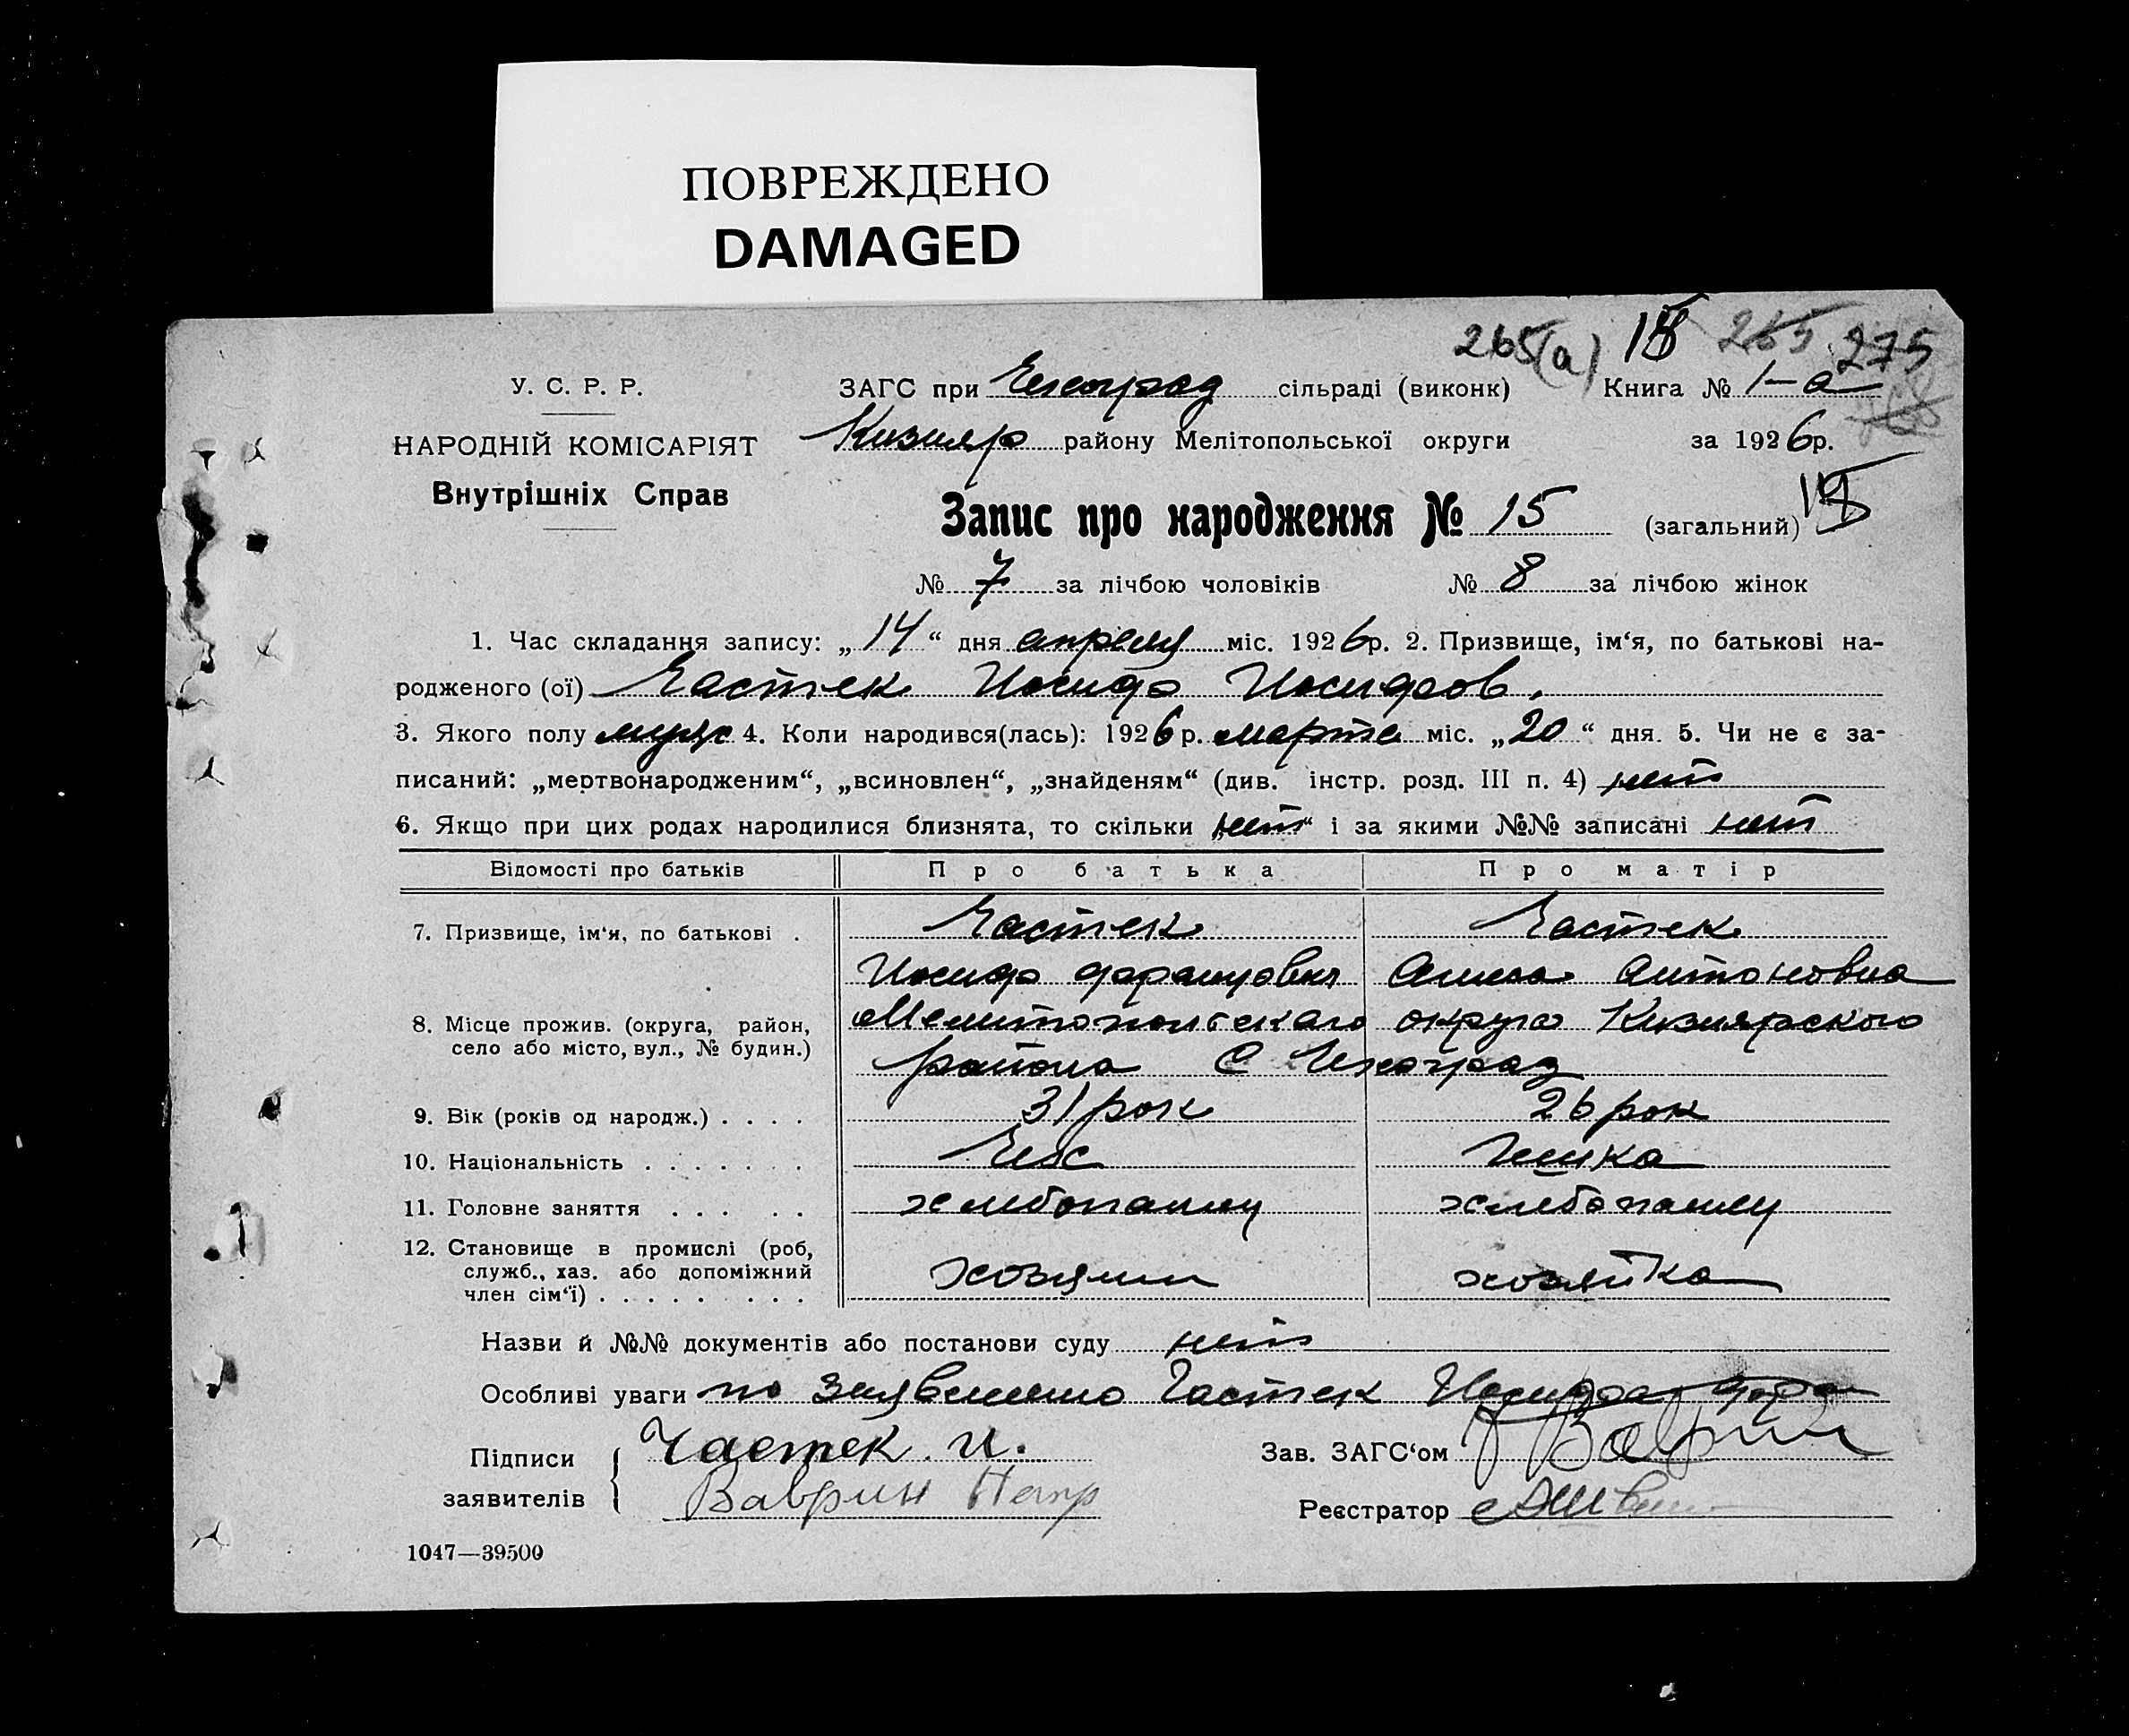 ПОВРЕЖДЕНО
DAMAGED
265(а) 18 265 275
У. С. Р. Р.
ЗАГС при Чехоград сільраді (виконк) Книга № 1-а
НАРОДНІЙ КОМІСАРІЯТ
Кизияр району Мелітопольської округи за 1926р.
Внутрішніх Справ
Запис про народження № 15 (загальний)
№ 7 за лічбою чоловіків № 8 за лічбою жінок
1. Час складання запису: „14“ дня апреля міс. 1926р. 2. Призвище, ім‘я, по батькові на-
родженого (ої) Частек Иосиф Иосифов.
3. Якого полу мужс 4. Коли народився(лась): 1926р. марта міс. „20“ дня. 5. Чи не є за-
писаний: „мертвонародженим“, „всиновлен“, „знайденям“ (див. інстр. розд. III п. 4) нет
6. Якщо при цих родах народилися близнята, то скільки „нет“ і за якими №№ записані нет
Відомості про батьків Про батька Про матір
7. Призвище, ім‘я, по батькові . Частек Частек
Иосиф Францович Анна Антоновна
8. Місце прожив. (округа, район, Мелитопольскаго округа Кизиярского
село або місто, вул., № будин.) района С Чехоград
9. Вік (років од народж.) . . . . 31 рок 26 рок
10. Національність . . . . . . . Чех Чешка
11. Головне заняття . . . . . хлебопашец хлебопашец
12. Становище в промислі (роб,
служб., хаз. або допоміжний хозяин хозяйка
член сім‘ї) . . . . . . . .
Назви й №№ документів або постанови суду нет
Особливі уваги по заявлению Частек Иосифа Фран
Підписи Частек. И. Зав. ЗАГС‘ом Ваврин
заявителів Ваврин Петр Реєстратор
1047—39500